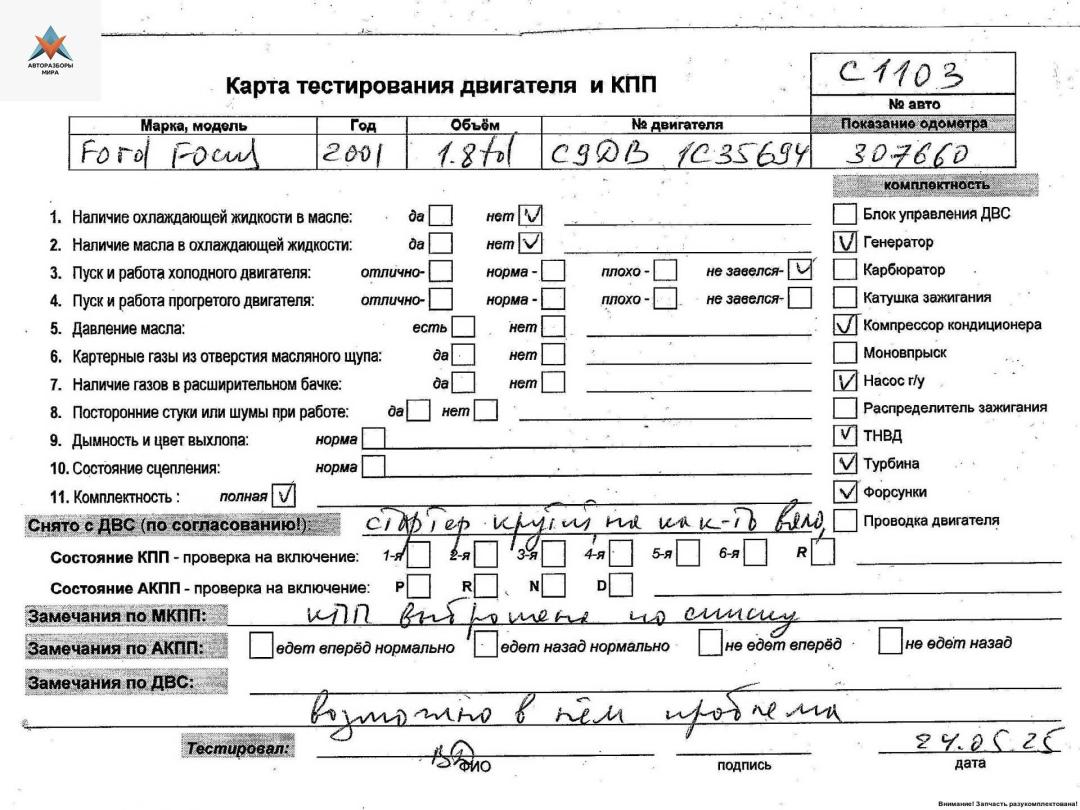 АВТОРАЗБОРЫ
МИРА
Карта тестирования двигателя и КПП
C1103
№ авто
Марка, модель Год Объём № двигателя Показание одометра
Ford Focus 2001 1.8td C9DB 1C35694 307660
комплектность
1. Наличие охлаждающей жидкости в масле: да нет
Блок управления ДВС
2. Наличие масла в охлаждающей жидкости: да нет
Генератор
3. Пуск и работа холодного двигателя: отлично- норма - плохо - не завелся-
Карбюратор
4. Пуск и работа прогретого двигателя: отлично- норма - плохо - не завелся-
Катушка зажигания
5. Давление масла: есть нет
Компрессор кондиционера
6. Картерные газы из отверстия масляного щупа: да нет
Моновпрыск
7. Наличие газов в расширительном бачке: да нет
Насос г/у
8. Посторонние стуки или шумы при работе: да нет
Распределитель зажигания
9. Дымность и цвет выхлопа: норма
ТНВД
10. Состояние сцепления: норма
Турбина
11. Комплектность : полная
Форсунки
Снято с ДВС (по согласованию!): стартер крутил, но как-то вяло,
Проводка двигателя
Состояние КПП - проверка на включение: 1-я 2-я 3-я 4-я 5-я 6-я R
Состояние АКПП - проверка на включение: P R N D
Замечания по МКПП: КПП выброшена по списку
Замечания по АКПП: едет вперёд нормально едет назад нормально не едет вперёд не едет назад
Замечания по ДВС:
возможно в нём проблема
Тестировал:
24.05.25
ФИО подпись дата
Внимание! Запчасть разукомплектована!